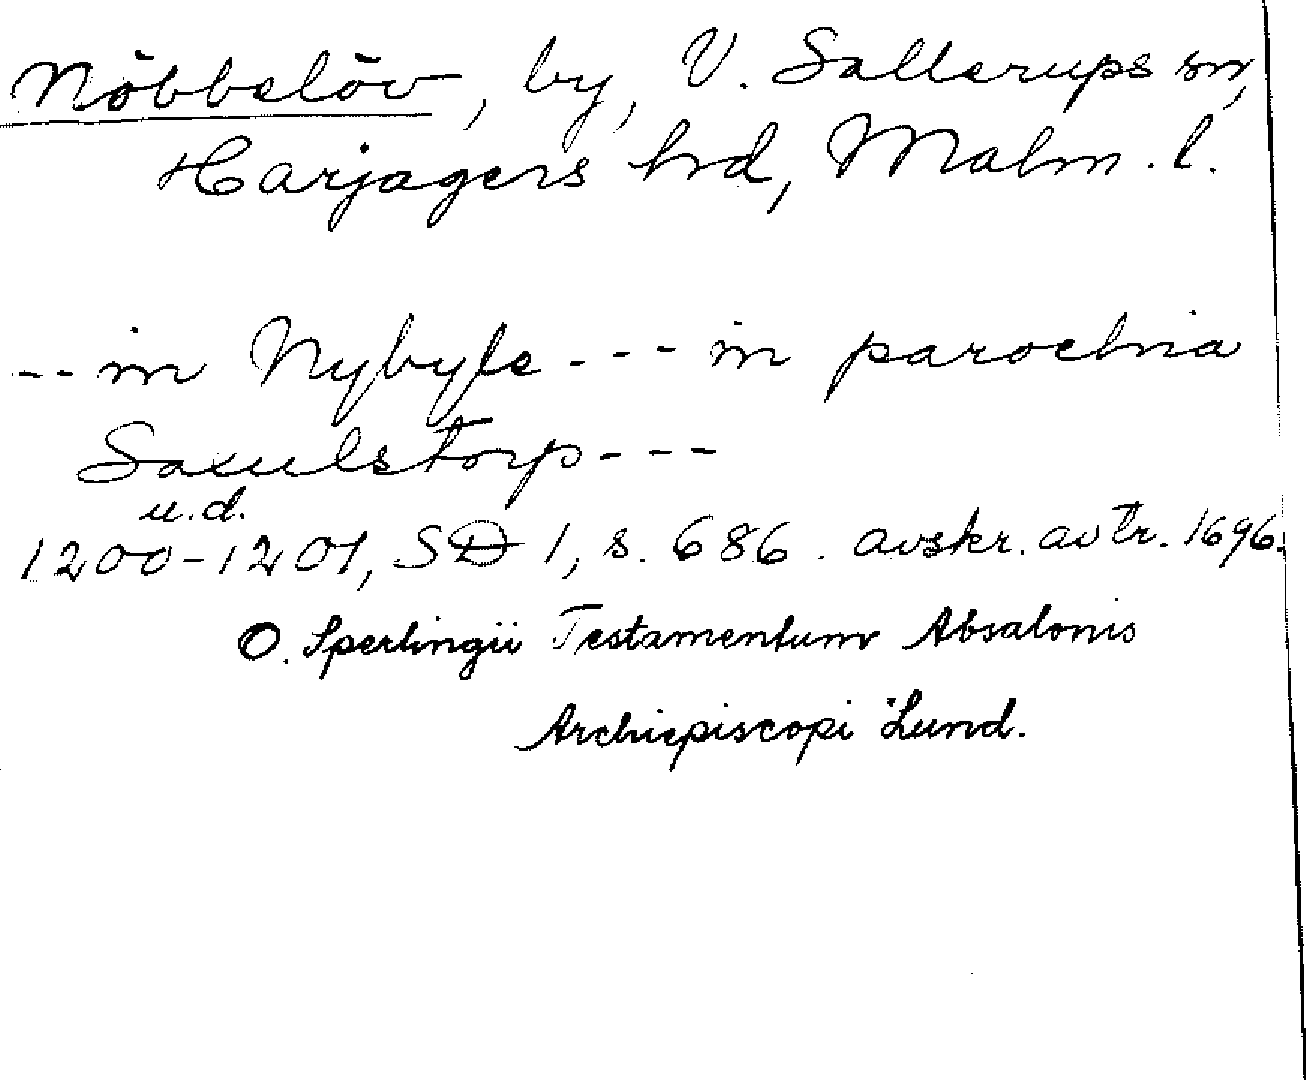 Nöbbelöv, by, V. Sallerups sn,
Harjagers hrd, Malm. l.
-- in Nybyle --- in parochia
Saxulstorp ---
u.d.
1200-1201, SD 1, s. 686. avskr. av tr. 1696.
O. Sperlingii Testamentum Absalonis
Archiepiscopi Lund.